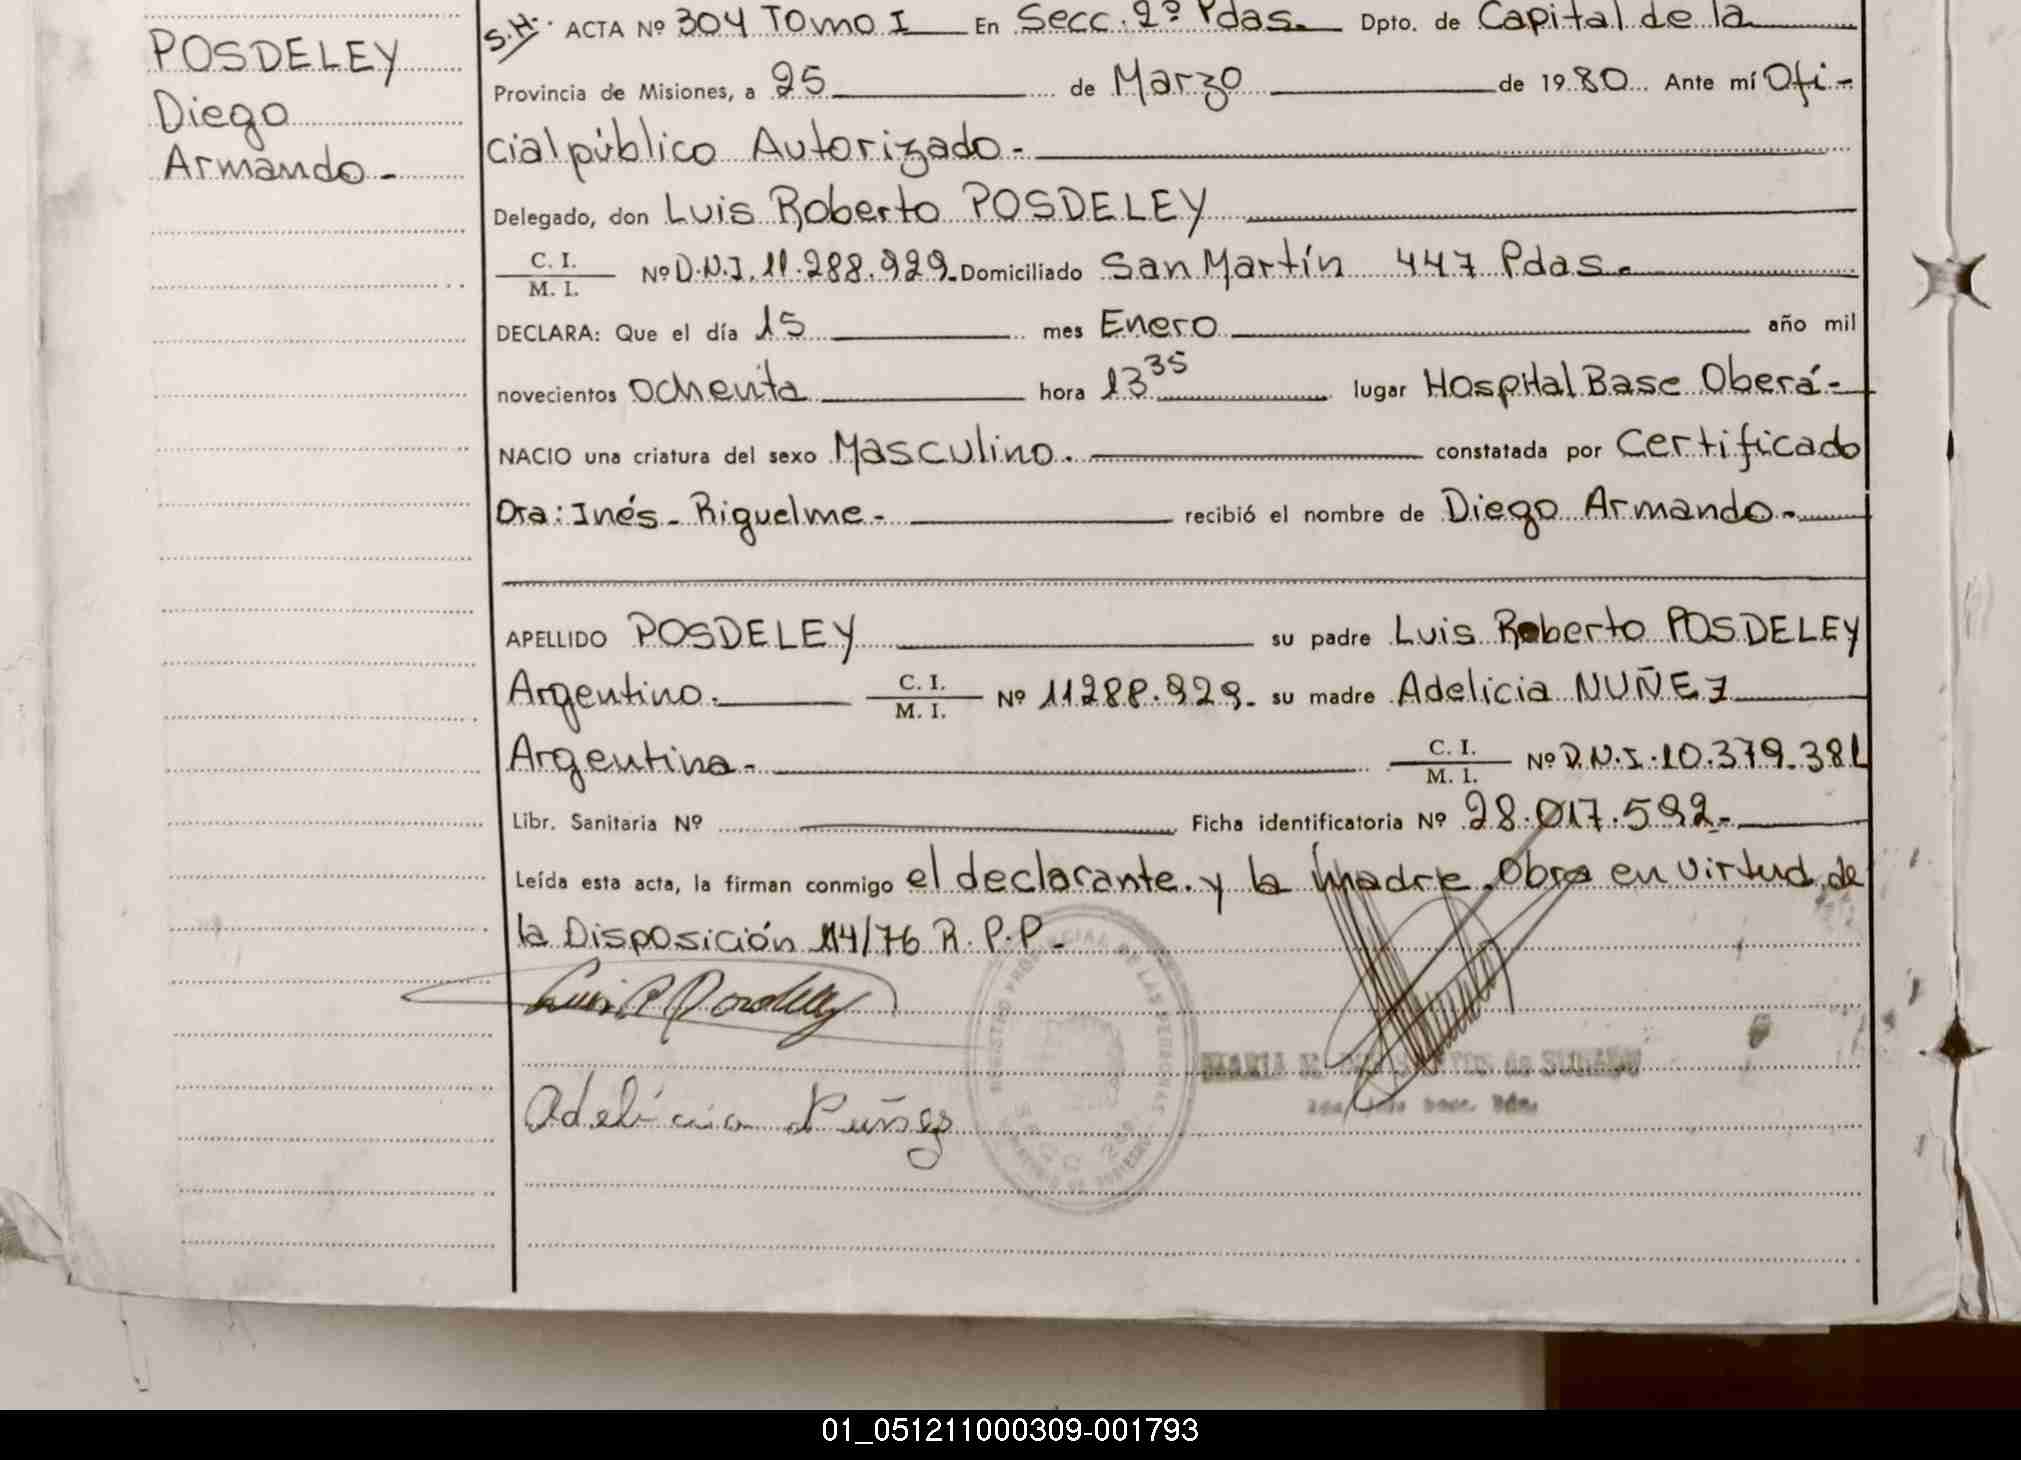 POSDELEY
Diego
Armando -
S.H. ACTA Nº 304 Tomo I En Secc. 2º Pdas. Dpto. de Capital de la
Provincia de Misiones, a 25 de Marzo de 1980 Ante mí Ofi-
cial público Autorizado -
Delegado, don Luis Roberto POSDELEY
C. I.
M. I. Nº D.N.I. 11.288.929. Domiciliado San Martín 447 Pdas.
DECLARA: Que el día 15 mes Enero año mil
novecientos ochenta hora 13 35 lugar Hospital Base Oberá -
NACIO una criatura del sexo Masculino. constatada por Certificado
Dra: Inés - Riguelme - recibió el nombre de Diego Armando -
APELLIDO POSDELEY su padre Luis Roberto POSDELEY
Argentino. C. I.
M. I. Nº 11288.929. su madre Adelicia NUÑEZ
Argentina - C. I.
M. I. Nº D.N.I. 10.379.381
Libr. Sanitaria Nº Ficha identificatoria Nº 28.017.592-
Leída esta acta, la firman conmigo el declarante y la madre. Obra en virtud de
la Disposición 114/76 R.P.P -
Luis R Posdeley
Adelicia Nuñez
REGISTRO PROVINCIAL DE LAS PERSONAS
01_051211000309-001793